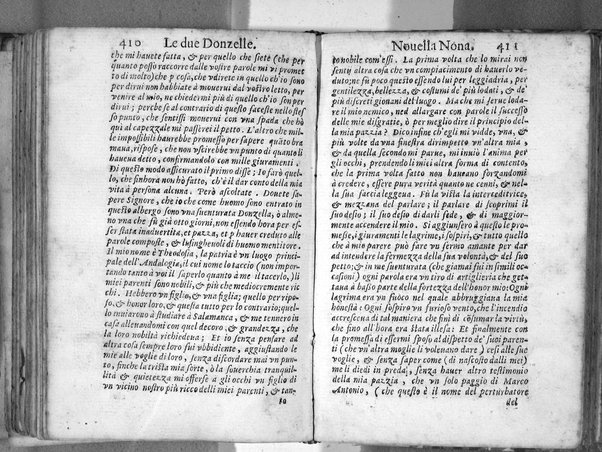 410 Le due Donzelle.
che mi hauete fatta, & per quello che siete (che per
quanto posso raccorre dalle vostre parole mi vi promet
to di molto) che p cosa, che vdirete in quello ch'io son
per dirui non habbiate à mouerui dal vostro letto, per
venire al mio, ne chiedermi più di quello ch'io son per
dirui; perche se al contrario di questo faceste nello stes
so punto, che sentissi mouerui con vna spada che hò
quì al capezzale mi passerei il petto. L'altro che mil-
le impossibili haurebbe promesso per sapere quāto bra
maua, rispose, che non vscirebbe vn punto di quanto li
haueua detto, confirmandolo con mille giuramenti.
Di questo modo assicurato il primo disse; Io farò quel-
lo, che sinhora non hò fatto, ch'è il dar conto della mia
vita à persona alcuna. Però ascoltate. Douete sa-
pere Signore, che io che come huomo son entrato in
questo albergo sono vna suenturata Donzella, ò alme-
no vna che fù già otto giorni, non essendo hora per es-
ser stata inaduertita, et pazza, et p hauer creduto alle
parole composte, & lusingheuoli di huomo mentitore.
Il mio nome è Theodosia, la patria è vn luogo princi-
pale dell'Andalogia, il cui nome io taccio (non impor-
tando tanto à voi il saperlo quanto à me il tacerlo, li
miei parenti sono nobili, & più che mediocremente ric
chi. Hebbero vn figlio, & vna figlia; quello per ripo-
so, & honor loro, & questa tutto per lo contrario; quel-
lo mandarono à studiare à Salamanca, & me tennero in
casa alleuandomi con quel decoro, & grandezza, che
la loro nobiltà richiedeua; Et io senza pensar ad
altra cosa sempre loro fui vbbidiente, aggiustando le
mie alle voglie di loro, senza discordare mai vn pun-
to, finche la trista mia sorte, ò la souerchia tranquil-
lità & quietezza mi offerse à gli occhi vn figlio di
vn vicino nostro più ricco delli miei parenti, & tan-
to
Nouella Nona. 411
to nobile com'essi. La prima volta che lo mirai non
sentij altra cosa che vn compiacimento di hauerlo ve-
duto; ne fù poco questo essendo lui per leggiadria, per
gentilezza, bellezza, & costumi de' più lodati, & de'
più discreti giouani del luogo. Ma che mi serue loda-
re il mio nemico, ned allargare con parole il successo
delle mie disgratie, ò per meglio dire il principio del-
la mia pazzia? Dico infine ch'egli mi vidde, vna, &
più volte da vna finestra dirimpetto vn'altra mia,
& da quella secondo mi parue, mi inuiò l'anima per
gli occhi, prendendoli miei altra forma di contento,
che la prima volta fatto non haueano forzandomi
à credere, essere pura verità quanto ne cenni, & nel-
la sua faccia leggeua. Fù la vista la interceditrice,
& mezana del parlare; il parlar di scoprirmi il
suo desio; il suo desio di darli fede, & di maggior-
mente accendere il mio. Si aggiunsero à questo le pro-
messe, i giuramenti le lagrime, i sospiri, & tutto quello
che à mio parere può fare vn fermo amante per dar
ad intendere la fermezza della sua volontà, & del suo
petto; & in me suenturata (che giamai fui in simili oc-
casioni) ogni parola era vn tiro di artiglieria che get-
taua à basso parte della fortezza dell'honor mio: Ogni
lagrima era vn fuoco nel quale abbruggiana la mia
honestà: Ogni sospiro vn furioso vento, che l'incendio
accrescena di tal maniera che finì di consumar la virtù,
che fino all'hora era stata illesa: Et finalmente con
la promessa di essermi sposo al dispetto de' suoi paren-
ti (che vn'altra moglie li voleuano dare) cesi alle sue
voglie, & senza saper come (di nascosto dalli miei)
me li diedi in preda, senza hauer altro testimonio
della mia pazzia, che vn solo paggio di Marco
Antonio, (che questo è il nome del perturbatore
del